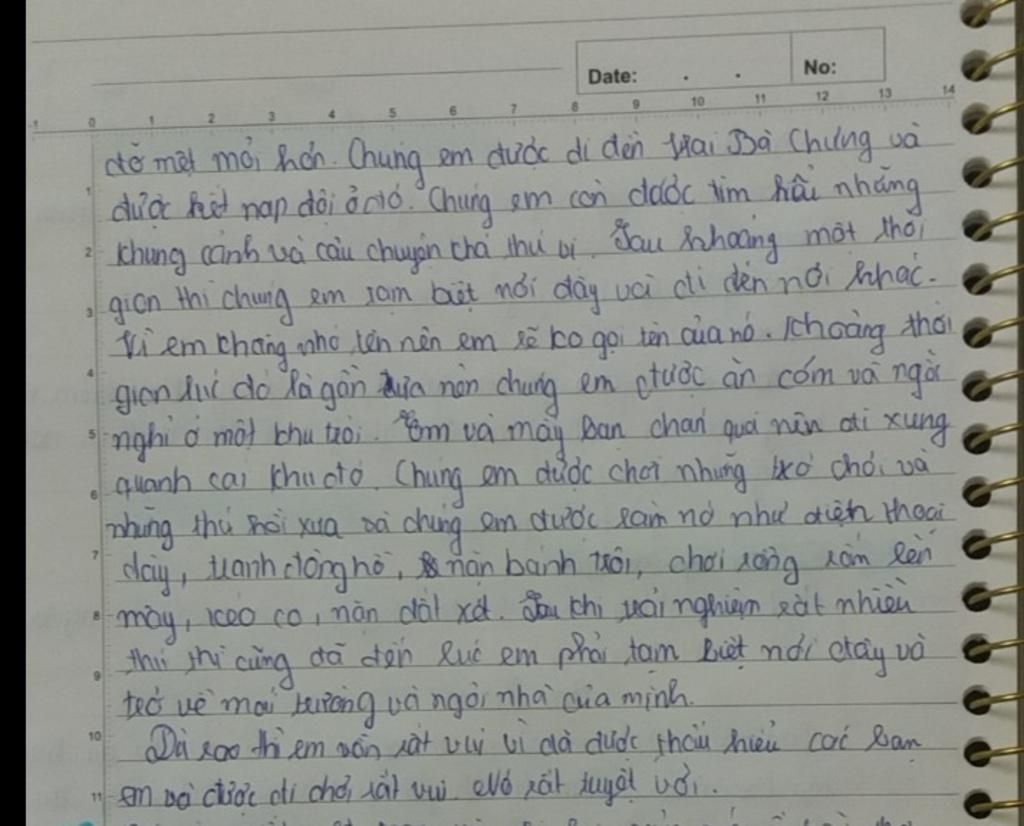 Date: . . No:
-1 0 1 2 3 4 5 6 7 8 9 10 11 12 13 14
đỡ mệt mỏi hơn. Chúng em được đi đến Hai Bà Chưng và
1 được kết nạp đội ở đó. Chúng em còn được tìm hểu nhưng
2 khung cảnh và câu chuyện thú vị. Sau khoảng một thời
3 gian thì chúng em tạm biệt nơi đây và đi đến nơi khác.
Vì em chẳng nhớ tên nên em sẽ ko gọi tên của nó. Khoảng thời
4 gian lúc đó là gần trưa nên chúng em được ăn cơm và ngồi
5 nghỉ ở một khu trời. Em và mấy bạn chán quá nên đi xung
6 quanh cái khu đó. Chúng em được chơi những trò chơi và
những thứ hồi xưa và chúng em được làm nó như điện thoại
7 dây, tranh đông hồ, nặn bánh trôi, chơi rồng rắn lên
8 mây, kéo co, nặn đất xét. Sau khi trải nghiệm rất nhiều
9 thứ thì cũng đã đến lúc em phải tạm biệt nơi đây và
trở về mái trường và ngôi nhà của mình.
10 Dù sao thì em vẫn rất vui vì đã được thấu hiểu các bạn
11 em và được đi chơi rất vui. Nó rất tuyệt vời.